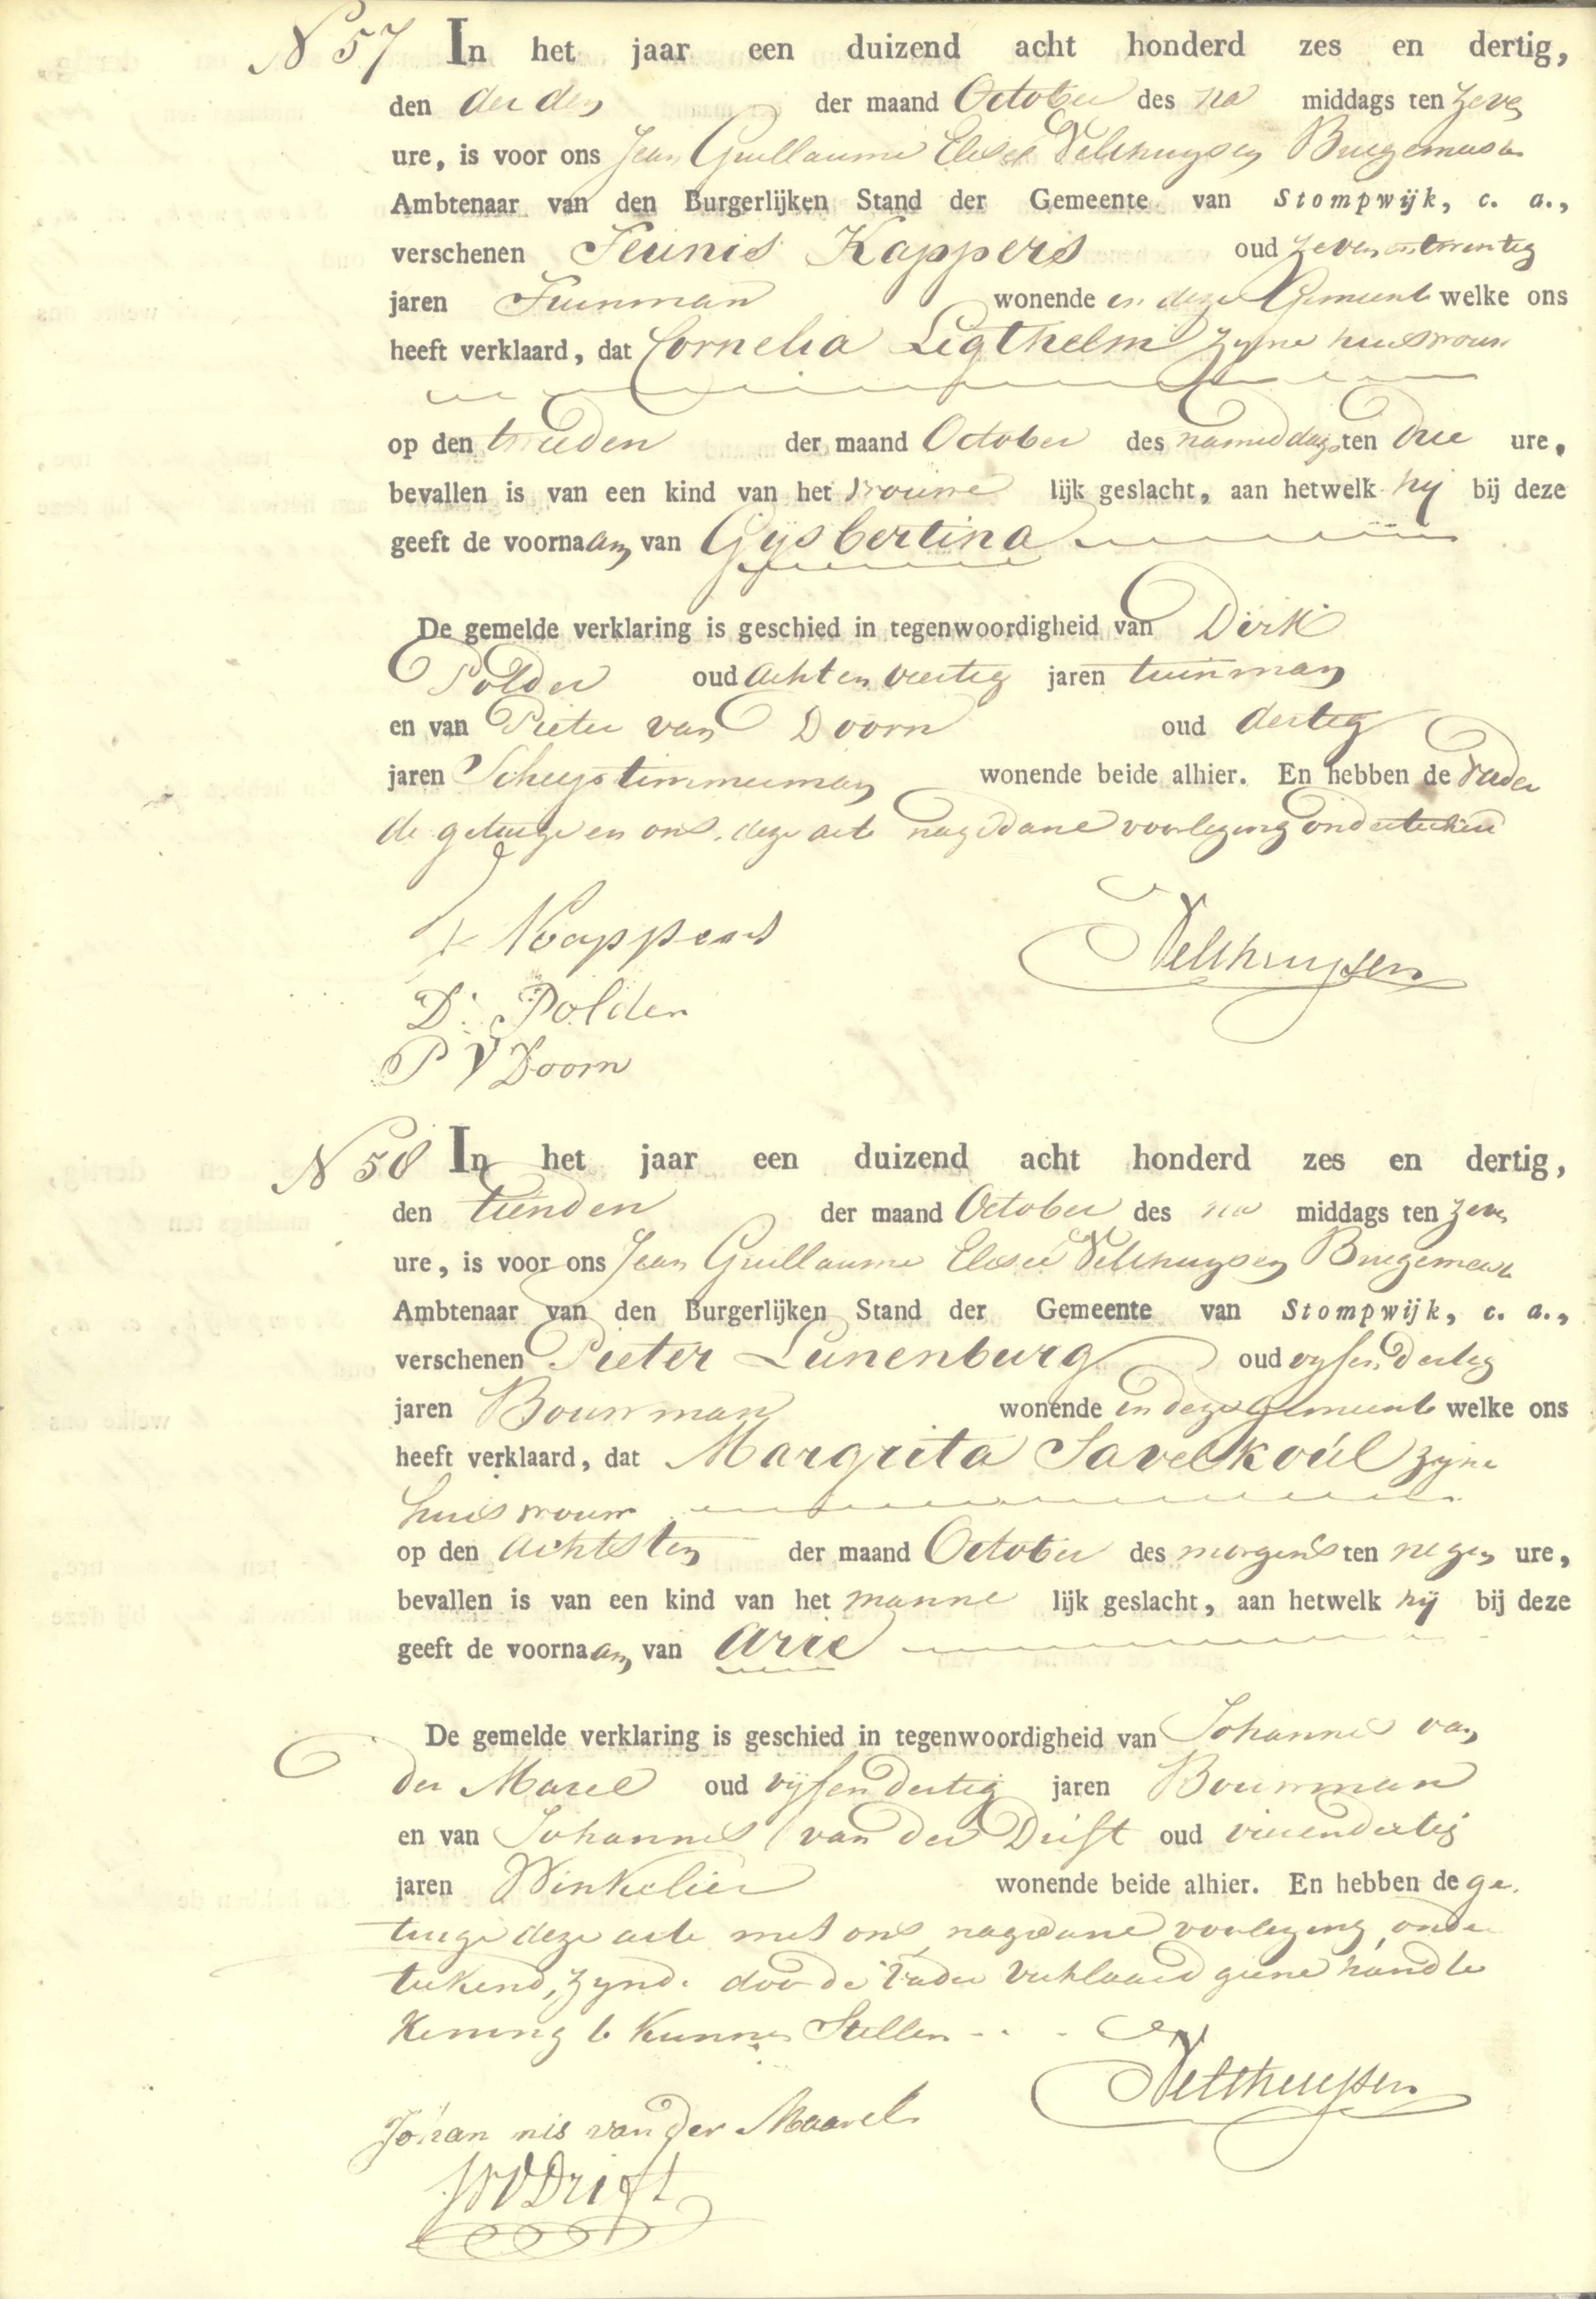 N 57 In het jaar een duizend acht honderd zes en dertig,
den derden der maand October des na middags ten zeven
ure, is voor ons Jean Guillaume Elisée Velthuysen Burgemeester
Ambtenaar van den Burgerlijken Stand der Gemeente van Stompwijk, c. a.,
verschenen Teunis Kappers oud zevenentwintig
jaren Tuinman wonende in deze Gemeente welke ons
heeft verklaard, dat Cornelia Ligthelm zyne huisvrouw
op den tweeden der maand October des namiddags ten drie ure,
bevallen is van een kind van het vrouwe lijk geslacht, aan hetwelk hij bij deze
geeft de voornaam van Gysbertina
De gemelde verklaring is geschied in tegenwoordigheid van Dirk
Polder oud achtenveertig jaren tuinman
en van Pieter van Doorn oud dertig
jaren Scheepstimmerman wonende beide alhier. En hebben de vader
de getuige en ons deze acte na gedane voorlezing onderteekend
T Kappers
Velthuysen
D. Polder
P V Doorn
N 58 In het jaar een duizend acht honderd zes en dertig,
den tienden der maand October des na middags ten zeven
ure, is voor ons Jean Guillaume Elisée Velthuysen Burgemeester
Ambtenaar van den Burgerlijken Stand der Gemeente van Stompwijk, c. a.,
verschenen Pieter Lunenburg oud vyfendertig
jaren Bouwman wonende in deze gemeente welke ons
heeft verklaard, dat Margrita Savelkoúl zyne
huisvrouw
op den achtsten der maand October des morgens ten negen ure,
bevallen is van een kind van het manne lijk geslacht, aan hetwelk hij bij deze
geeft de voornaam van Arie
De gemelde verklaring is geschied in tegenwoordigheid van Johannes van
der Marel oud vyfendertig jaren Bouwman
en van Johannes van der Drift oud vierendertig
jaren Winkelier wonende beide alhier. En hebben de ge
tuige deze acte met ons na gedane voorlezing onder
tekend, zynde door de Vader verklaard geene handte
kening te kunnen Stellen
Velthuysen
Johan nis van der Maarel
JVD Drift